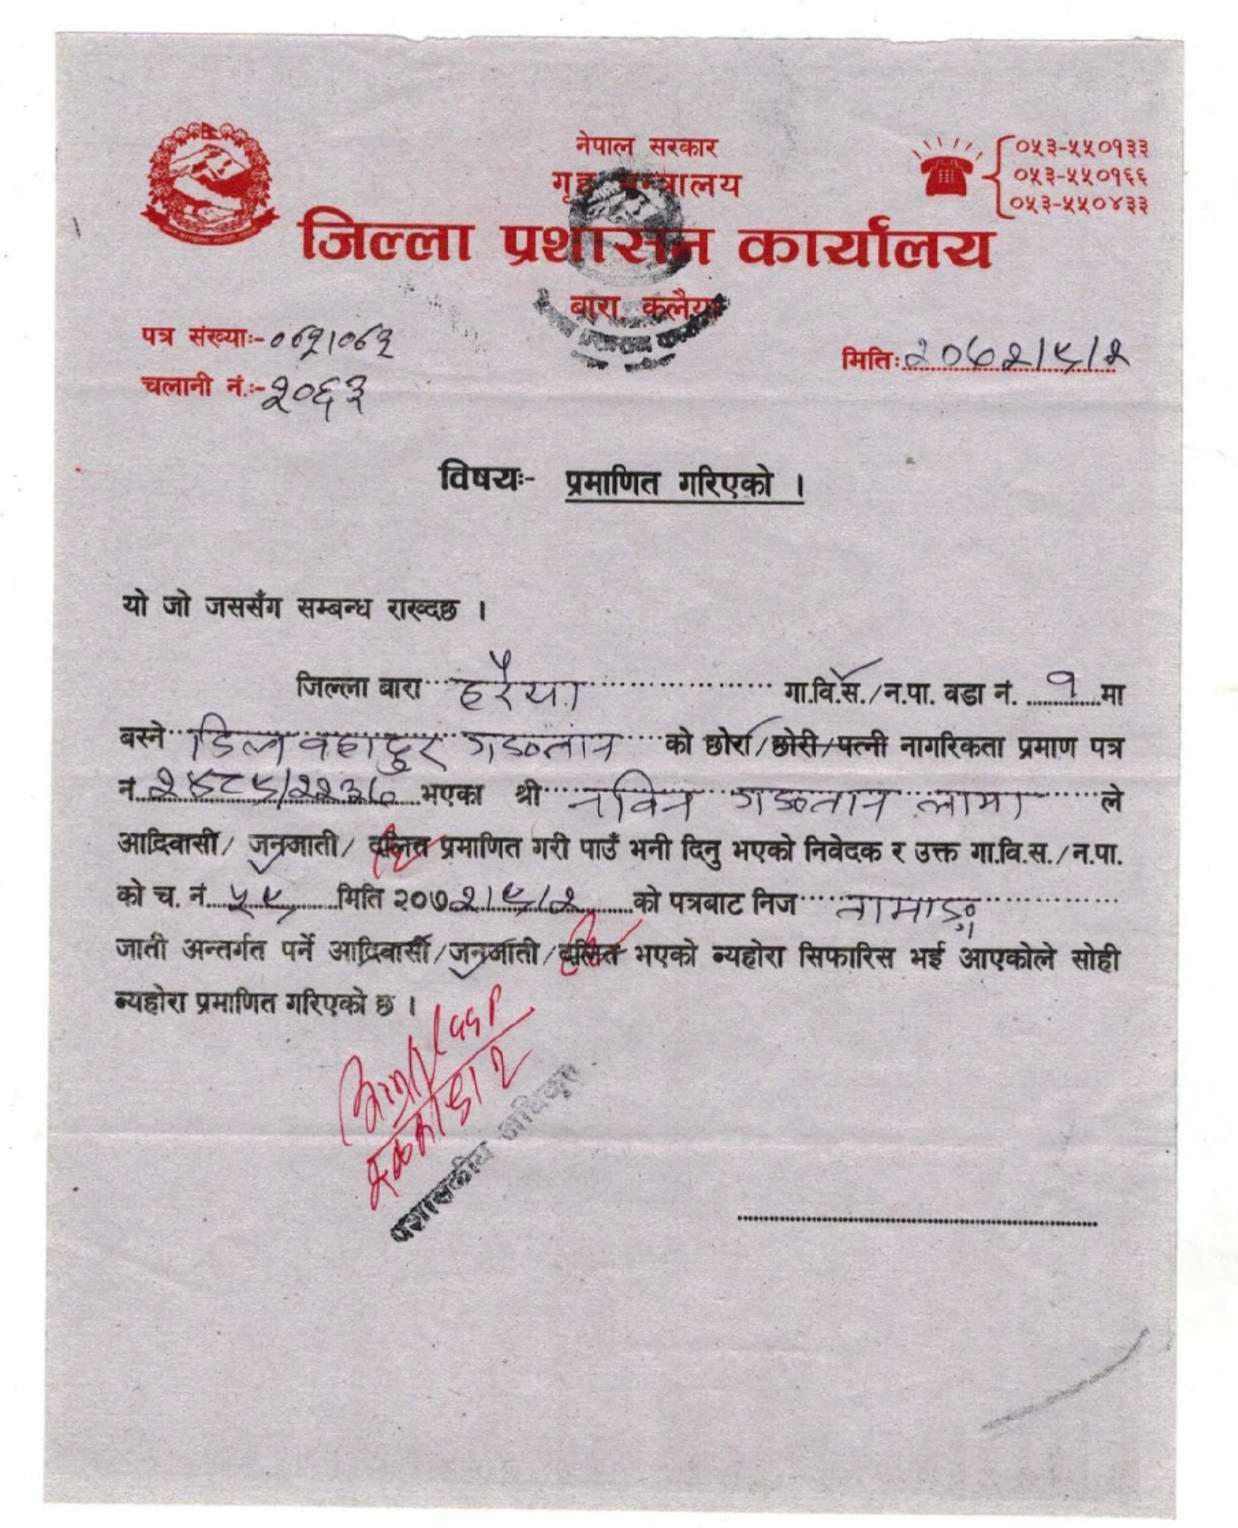 नेपाल सरकार
गृह मन्त्रालय
जिल्ला प्रशासन कार्यालय
बारा कलैया
०५३-५५०१३३
०५३-५५०१६६
०५३-५५०४३३
पत्र संख्याः-
चलानी नं.ः- २०६३
मितिः २०७२/५/२
विषयः- प्रमाणित गरिएको ।
यो जो जससँग सम्बन्ध राख्दछ ।
जिल्ला बारा हरैया गा.वि.स./न.पा. वडा नं. १ मा
बस्ने डिल बहादुर गङतान को छोरा/छोरी/पत्नी नागरिकता प्रमाण पत्र
नं भएका श्री नविन गङतान लामा ले
आदिवासी/ जनजाती/ दलित प्रमाणित गरी पाउँ भनी दिनु भएको निवेदक र उक्त गा.वि.स./न.पा.
को च. नं. ५९ मिति २०७२/५/२ को पत्रबाट निज तामाङ
जाती अन्तर्गत पर्ने आदिवासी/जनजाती/दलित भएको ब्यहोरा सिफारिस भई आएकोले सोही
ब्यहोरा प्रमाणित गरिएको छ ।
प्रशासकीय अधिकृत